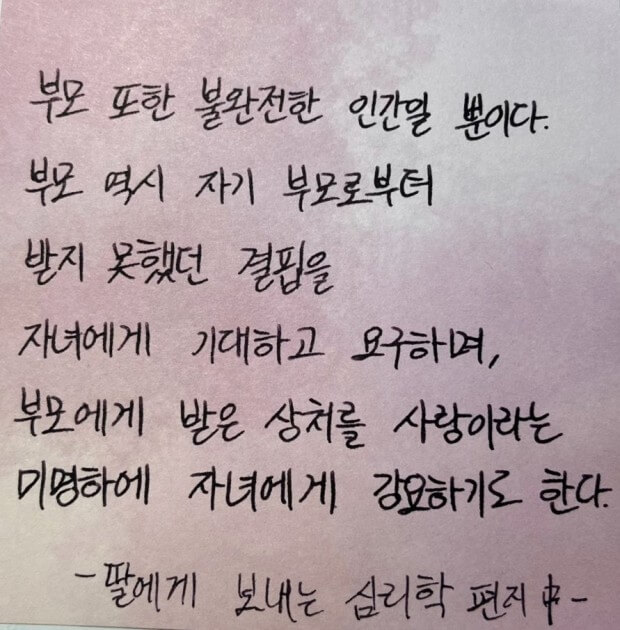 부모 또한 불완전한 인간일 뿐이다.
부모 역시 자기 부모로부터
받지 못했던 결핍을
자녀에게 기대하고 요구하며,
부모에게 받은 상처를 사랑이라는
미명하에 자녀에게 강요하기도 한다.
-딸에게 보내는 심리학 편지 中-